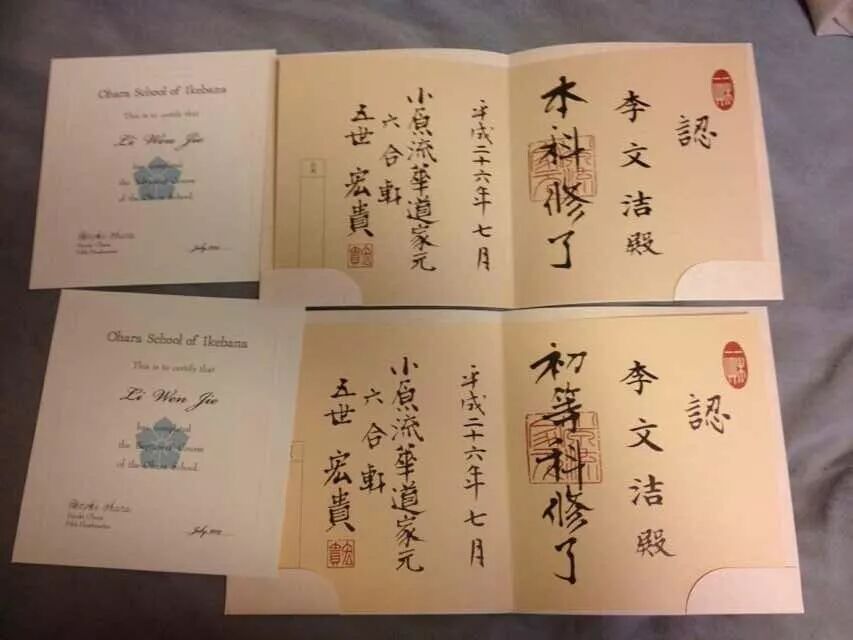 Ohara School of Ikebana
This is to certify that
Li Wen Jie
of the Ohara School.
July
認
李文洁殿
本科修了
平成二十六年七月
小原流華道家元
六合軒
五世宏貴
Ohara School of Ikebana
This is to certify that
Li Wen Jie
has completed
of the Ohara School.
July
認
李文洁殿
初等科修了
平成二十六年七月
小原流華道家元
六合軒
五世宏貴